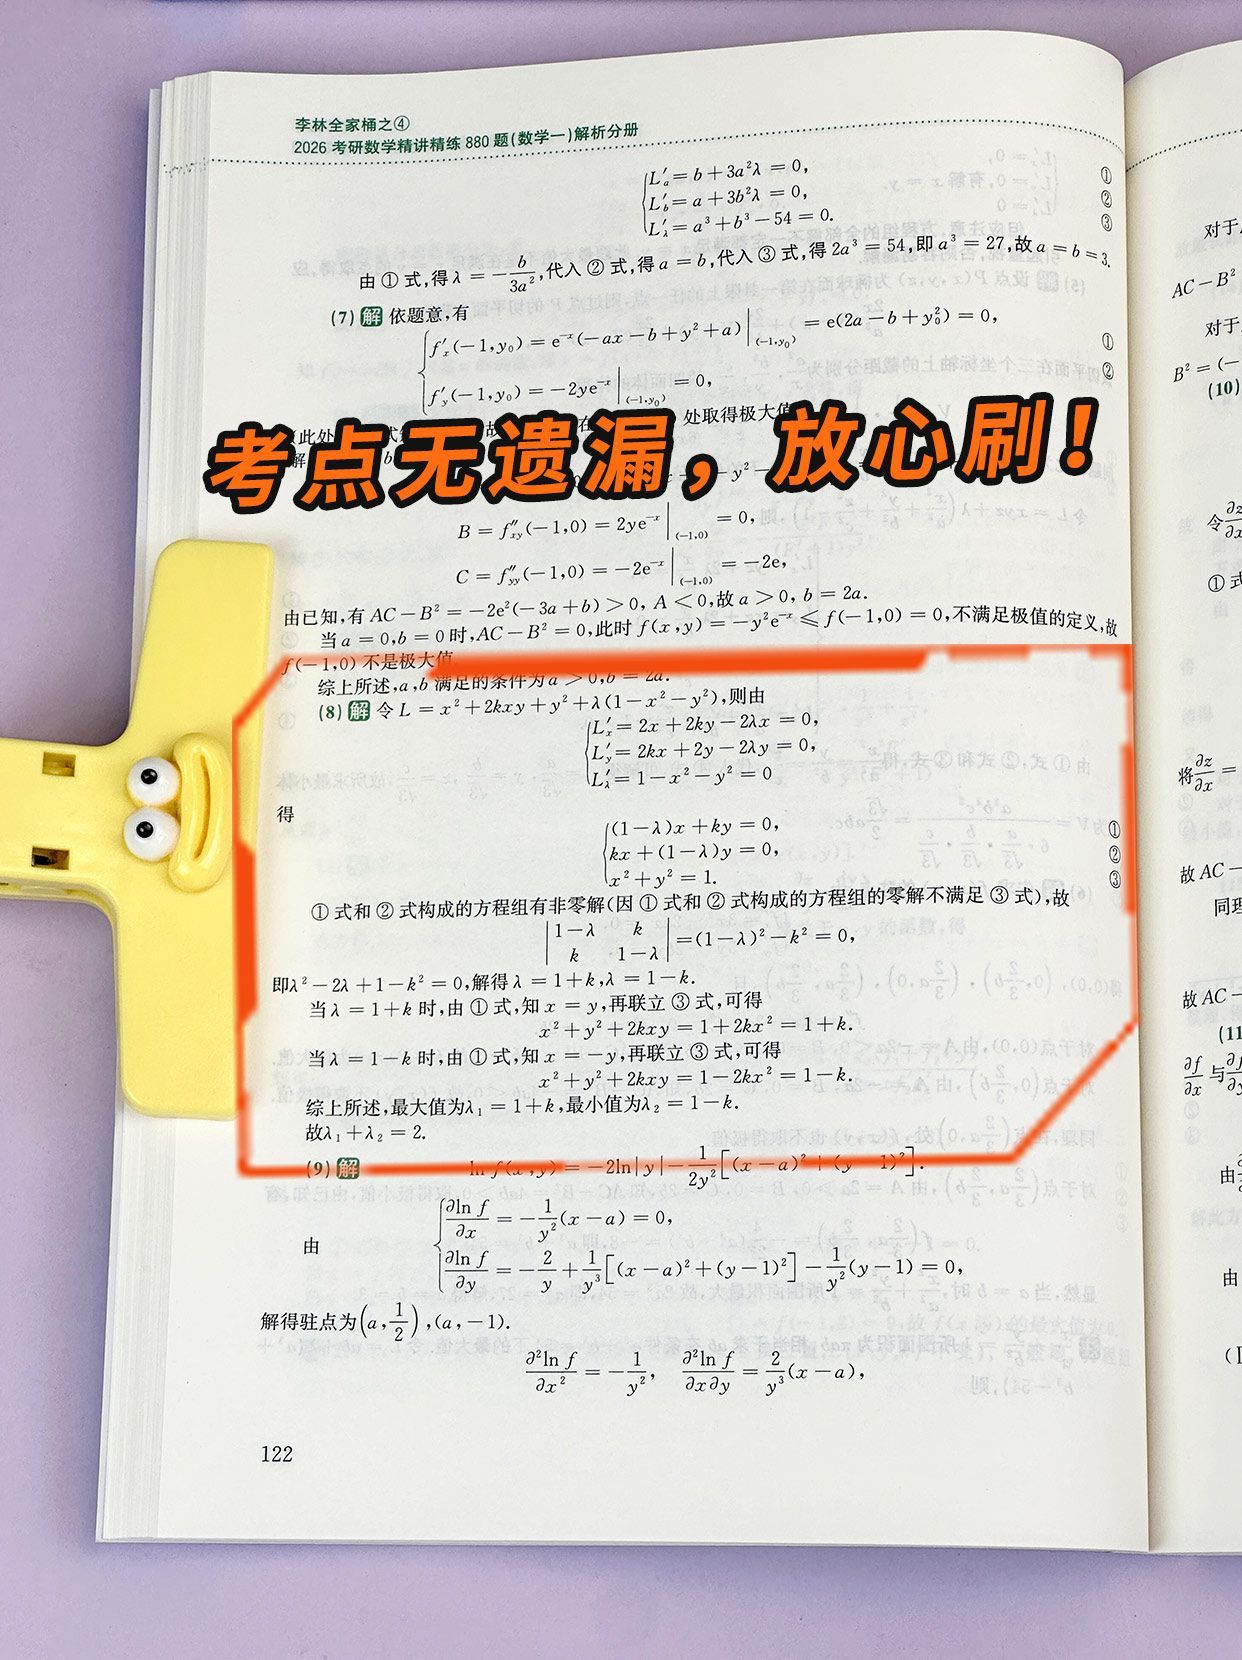 李林全家桶之④
2026 考研数学精讲精练 880 题(数学一)解析分册
L′ₐ = b + 3a²λ = 0, ①
L′_b = a + 3b²λ = 0, ②
L′_λ = a³ + b³ − 54 = 0. ③
由 ① 式,得 λ = −b/3a²,代入 ② 式,得 a = b,代入 ③ 式,得 2a³ = 54,即 a³ = 27,故 a = b = 3.
(7) 解 依题意,有
f′ₓ(−1,y₀) = e⁻ˣ(−ax − b + y² + a)|₍₋₁,y₀₎ = e(2a − b + y₀²) = 0, ①
f′_y(−1,y₀) = −2ye⁻ˣ|₍₋₁,y₀₎ = 0, ②
处取得极大值
考点无遗漏，放心刷！
B = f″ₓy(−1,0) = 2ye⁻ˣ|₍₋₁,₀₎ = 0,
C = f″yy(−1,0) = −2e⁻ˣ|₍₋₁,₀₎ = −2e,
由已知,有 AC − B² = −2e²(−3a + b) > 0, A < 0,故 a > 0, b = 2a.
当 a = 0,b = 0 时,AC − B² = 0,此时 f(x,y) = −y²e⁻ˣ ≤ f(−1,0) = 0,不满足极值的定义,故
f(−1,0) 不是极大值.
综上所述,a,b 满足的条件为 a > 0,b = 2a.
(8) 解 令 L = x² + 2kxy + y² + λ(1 − x² − y²),则由
L′ₓ = 2x + 2ky − 2λx = 0,
L′_y = 2kx + 2y − 2λy = 0,
L′_λ = 1 − x² − y² = 0
得
(1 − λ)x + ky = 0, ①
kx + (1 − λ)y = 0, ②
x² + y² = 1. ③
① 式和 ② 式构成的方程组有非零解(因 ① 式和 ② 式构成的方程组的零解不满足 ③ 式),故
|1 − λ k|
|k 1 − λ| = (1 − λ)² − k² = 0,
即λ² − 2λ + 1 − k² = 0,解得 λ = 1 + k,λ = 1 − k.
当 λ = 1 + k 时,由 ① 式,知 x = y,再联立 ③ 式,可得
x² + y² + 2kxy = 1 + 2kx² = 1 + k.
当 λ = 1 − k 时,由 ① 式,知 x = −y,再联立 ③ 式,可得
x² + y² + 2kxy = 1 − 2kx² = 1 − k.
综上所述,最大值为λ₁ = 1 + k,最小值为λ₂ = 1 − k.
故λ₁ + λ₂ = 2.
(9) 解 ln f(x,y) = −2ln|y| − 1/2y²[(x − a)² + (y − 1)²].
由
∂ln f/∂x = −1/y²(x − a) = 0,
∂ln f/∂y = −2/y + 1/y³[(x − a)² + (y − 1)²] − 1/y²(y − 1) = 0,
解得驻点为(a, 1/2),(a, −1).
∂²ln f/∂x² = −1/y², ∂²ln f/∂x∂y = 2/y³(x − a),
122
对于
AC − B²
对于
B² = (−
(10)
令∂z/∂x
① 式
将∂z/∂x =
故 AC −
同理
故 AC −
(11
∂f/∂x 与∂f/∂y
由
由